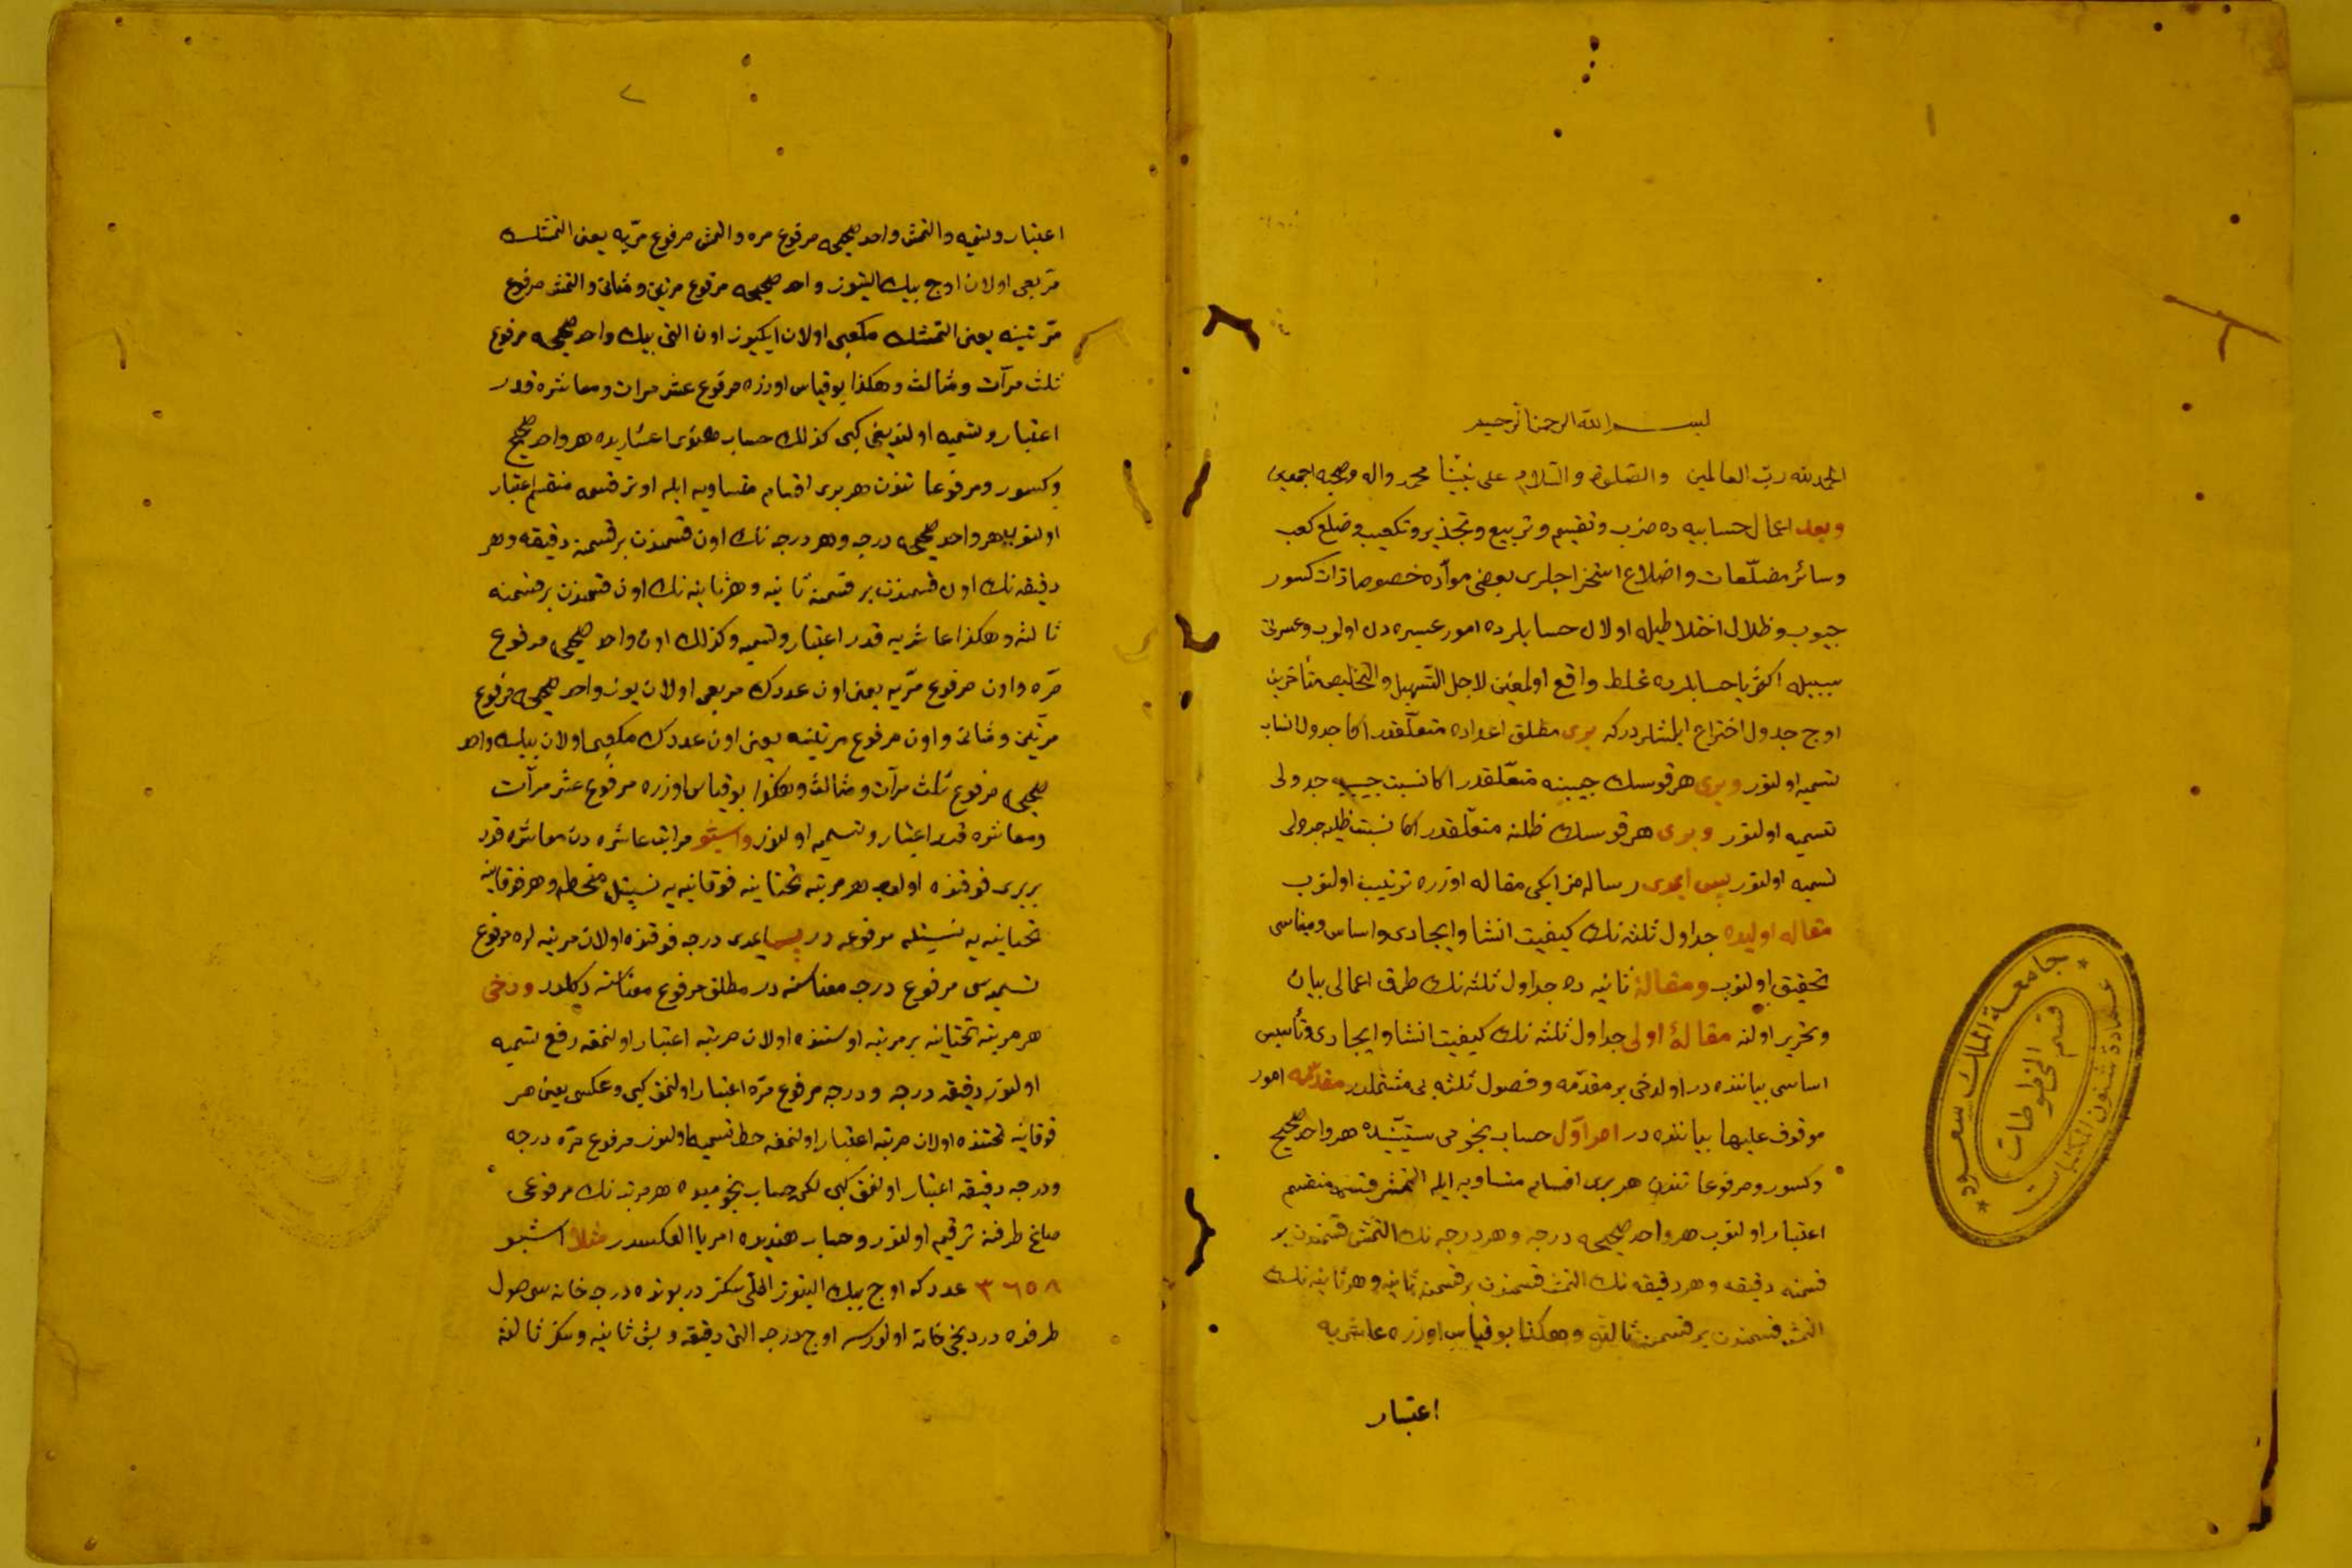 بسم الله الرحمن الرحيم
الحمد لله رب العالمين والصلوة والسلام على نبينا محمد واله وصحبه اجمعين
وبعد اعمال حسابيه ده ضرب وتقسيم وتربيع وتجذير وتكعيب وضلع كعب
وسائر مضلعات واضلاع استخراجلرى بعضى موادده خصوصا ذات كسور
جيوب وظلال اختلاطيله اولان حسابلرده امور عسيره دن اولوب وعسرتى
سببيله اكثريا حسابلرده غلط واقع اولمغين لاجل التسهيل والتخليص متأخرين
اوج جدول اختراع ايلمشلردركه برى مطلق اعداده متعلقدر اكا جدول انساب
تسميه اولنور وبرى هر قوسك جيبنه متعلقدر اكا نسبت جيبيه جدولى
تسميه اولنور وبرى هر قوسك ظلنه متعلقدر اكا نسبت ظليه جدولى
تسميه اولنور پس ايمدى رساله مز ايكى مقاله اوزره ترتيب اولنوب
مقاله اوليده جداول ثلثه نك كيفيت انشا وايجادى واساس ومبناسى
تحقيق اولنوب ومقالۀ ثانيه ده جداول ثلثه نك طرق اعمالى بيان
وتحرير اولنه مقالۀ اولى جداول ثلثه نك كيفيت انشا وايجادى وتأسيس
اساسى بياننده در اولدخى بر مقدمه وفصول ثلثه يى مشتملدر مقدمه امور
موقوف عليها بياننده در امر اول حساب نجومى ستينيده هر واحد صحيح
وكسور ومرفوعاتندن هر برى اقسام متساويه ايله التمش قسمه منقسم
اعتبار اولنوب هر واحد صحيحه درجه وهر درجه نك التمش قسمندن بر
قسمنه دقيقه وهر دقيقه نك التمش قسمندن بر قسمنه ثانيه وهر ثانيه نك
التمش قسمندن بر قسمنه ثالثه وهكذا بو قياس اوزره عاشريه
اعتبار
جامعة الملك سعود
عمادة شئون المكتبات
قسم المخطوطات
اعتبار وتسميه والتمش واحد صحيحه مرفوع مره والتمش مرفوع مريه يعنى التمشك
مربعى اولان اوج بيك التيوز واحد صحيحه مرفوع مرتين ومثانى والتمش مرفوع
مرتينه يعنى التمشك مكعبى اولان ايكيوز اون التى بيك واحد صحيحه مرفوع
ثلث مرات ومثالث وهكذا بو قياس اوزره مرفوع عشر مرات ومعاشره قدر
اعتبار وتسميه اولنديغى كبى كذلك حساب هندى اعشاريده هر واحد صحيح
وكسور ومرفوعاتندن هر برى اقسام متساويه ايله اونر قسمه منقسم اعتبار
اولنوب هر واحد صحيحه درجه وهر درجه نك اون قسمندن بر قسمنه دقيقه وهر
دقيقه نك اون قسمندن بر قسمنه ثانيه وهر ثانيه نك اون قسمندن بر قسمنه
ثالثه وهكذا عاشريه قدر اعتبار وتسميه وكذلك اون واحد صحيحه مرفوع
مره واون مرفوع مريه يعنى اون عددك مربعى اولان يوز واحد صحيحه مرفوع
مرتين ومثانى واون مرفوع مرتينه يعنى اون عددك مكعبى اولان بيك واحد
صحيحه مرفوع ثلث مرات ومثالث وهكذا بو قياس اوزره مرفوع عشر مرات
ومعاشره قدر اعتبار وتسميه اولنور واشبو مراتب عاشره دن معاشره قدر
بربرى فوقنده اولوب هر مرتبه تحتانيه فوقانيه يه نسبتله منحطه وهر فوقانيه
تحتانيه يه نسبتله مرفوعه در پس ايمدى درجه فوقنده اولان مرتبه لره مرفوع
تسميه سى مرفوع درجه معناسنه در مطلق مرفوع معناسنه دكلدر ودخى
هر مرتبه تحتانيه بر مرتبه اوستنده اولان مرتبه اعتبار اولنمغه رفع تسميه
اولنور دقيقه درجه ودرجه مرفوع مره اعتبار اولنمق كبى وعكسى يعنى هر
فوقانيه تحتنده اولان مرتبه اعتبار اولنمغه حط تسميه اولنور مرفوع مره درجه
ودرجه دقيقه اعتبار اولنمق كبى لكن حساب نجوميده هر مرتبه نك مرفوعى
صاغ طرفنه ترقيم اولنور وحساب هنديده امر بالعكسدر مثلا اشبو
٣٦٥٨ عدد كه اوج بيك التيوز اللى سكز در بونده درجه خانه سى صول
طرفده دردنجى خانه اولورسه اوج درجه التى دقيقه وبش ثانيه وسكز ثالثه